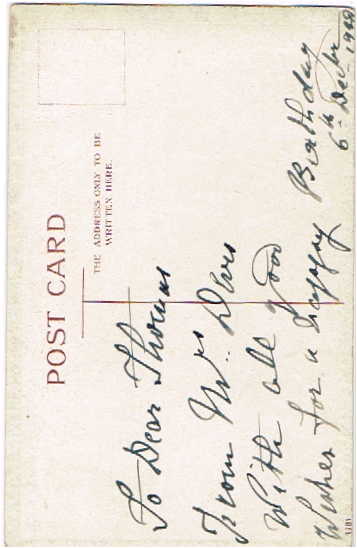 POST CARD
THE ADDRESS ONLY TO BE
WRITTEN HERE.
To Dear Thomas
From Mrs
With all Good
Wishes for a Happy Birthday
6th Decbr